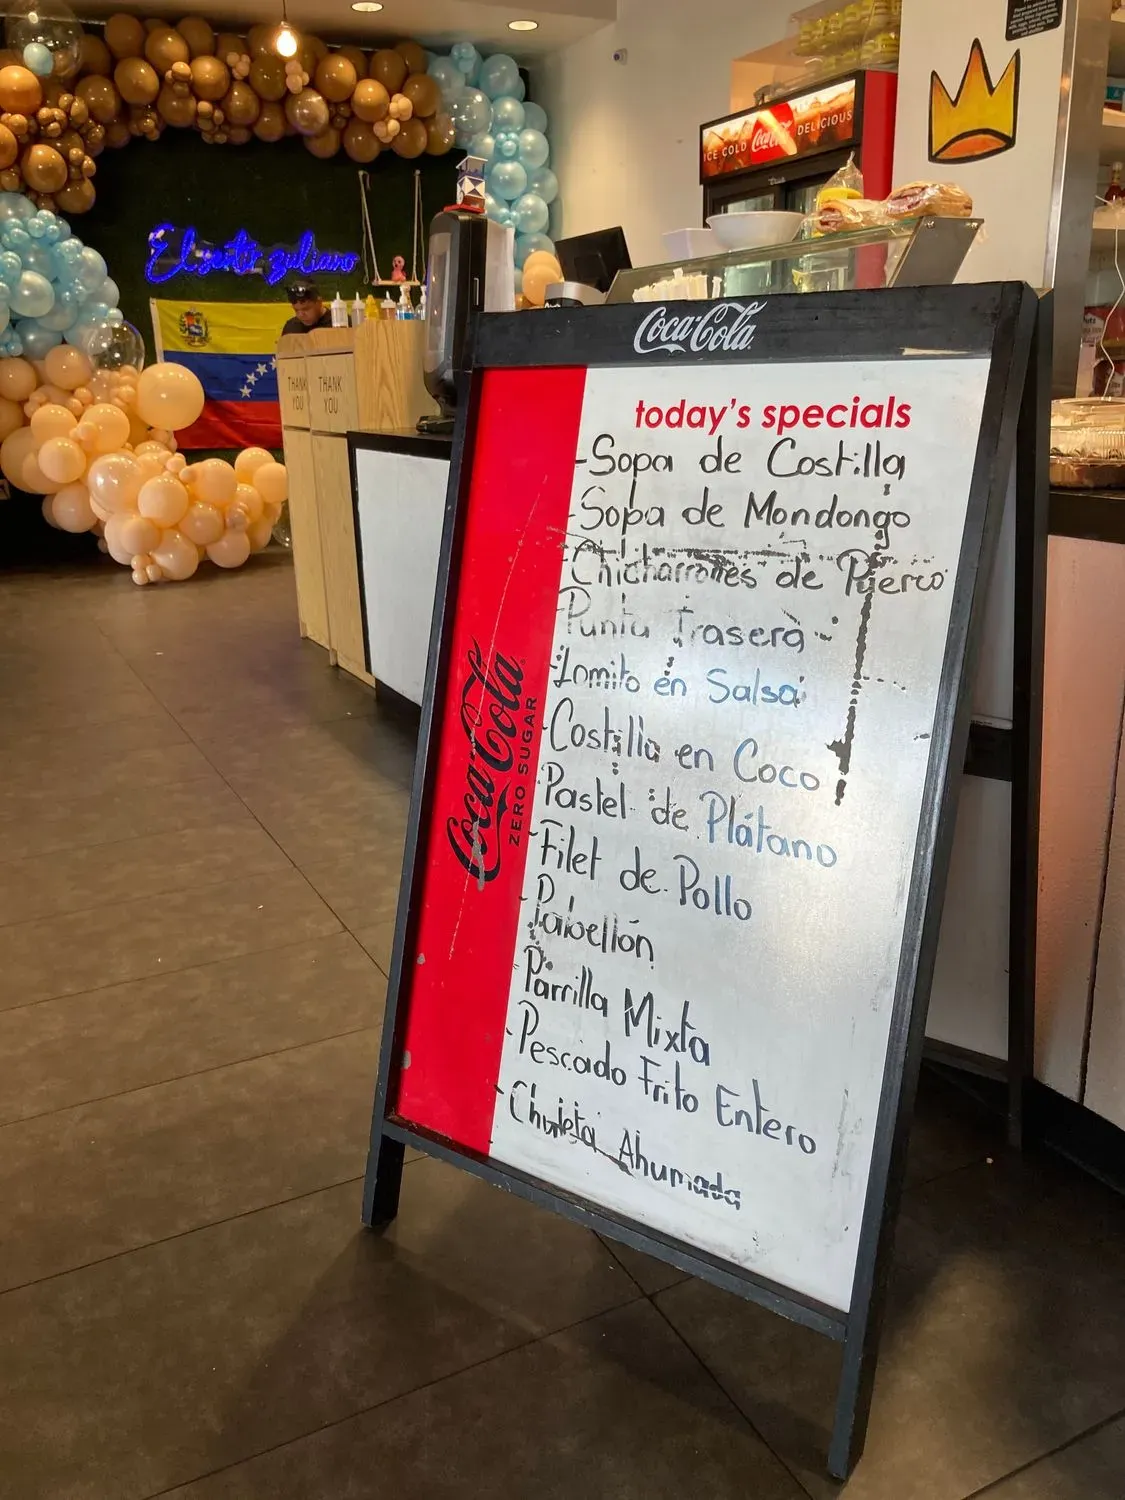 El sentir zuliano
THANK
YOU
THANK
YOU
ICE COLD Coca-Cola DELICIOUS
Coca-Cola
today's specials
-Sopa de Costilla
-Sopa de Mondongo
-Chicharrones de Puerco
-Punta Trasera
-Lomito en Salsa
-Costilla en Coco
-Pastel de Plátano
-Filet de Pollo
-Pabellón
-Parrilla Mixta
-Pescado Frito Entero
-Chuleta Ahumada
Coca-Cola
ZERO SUGAR